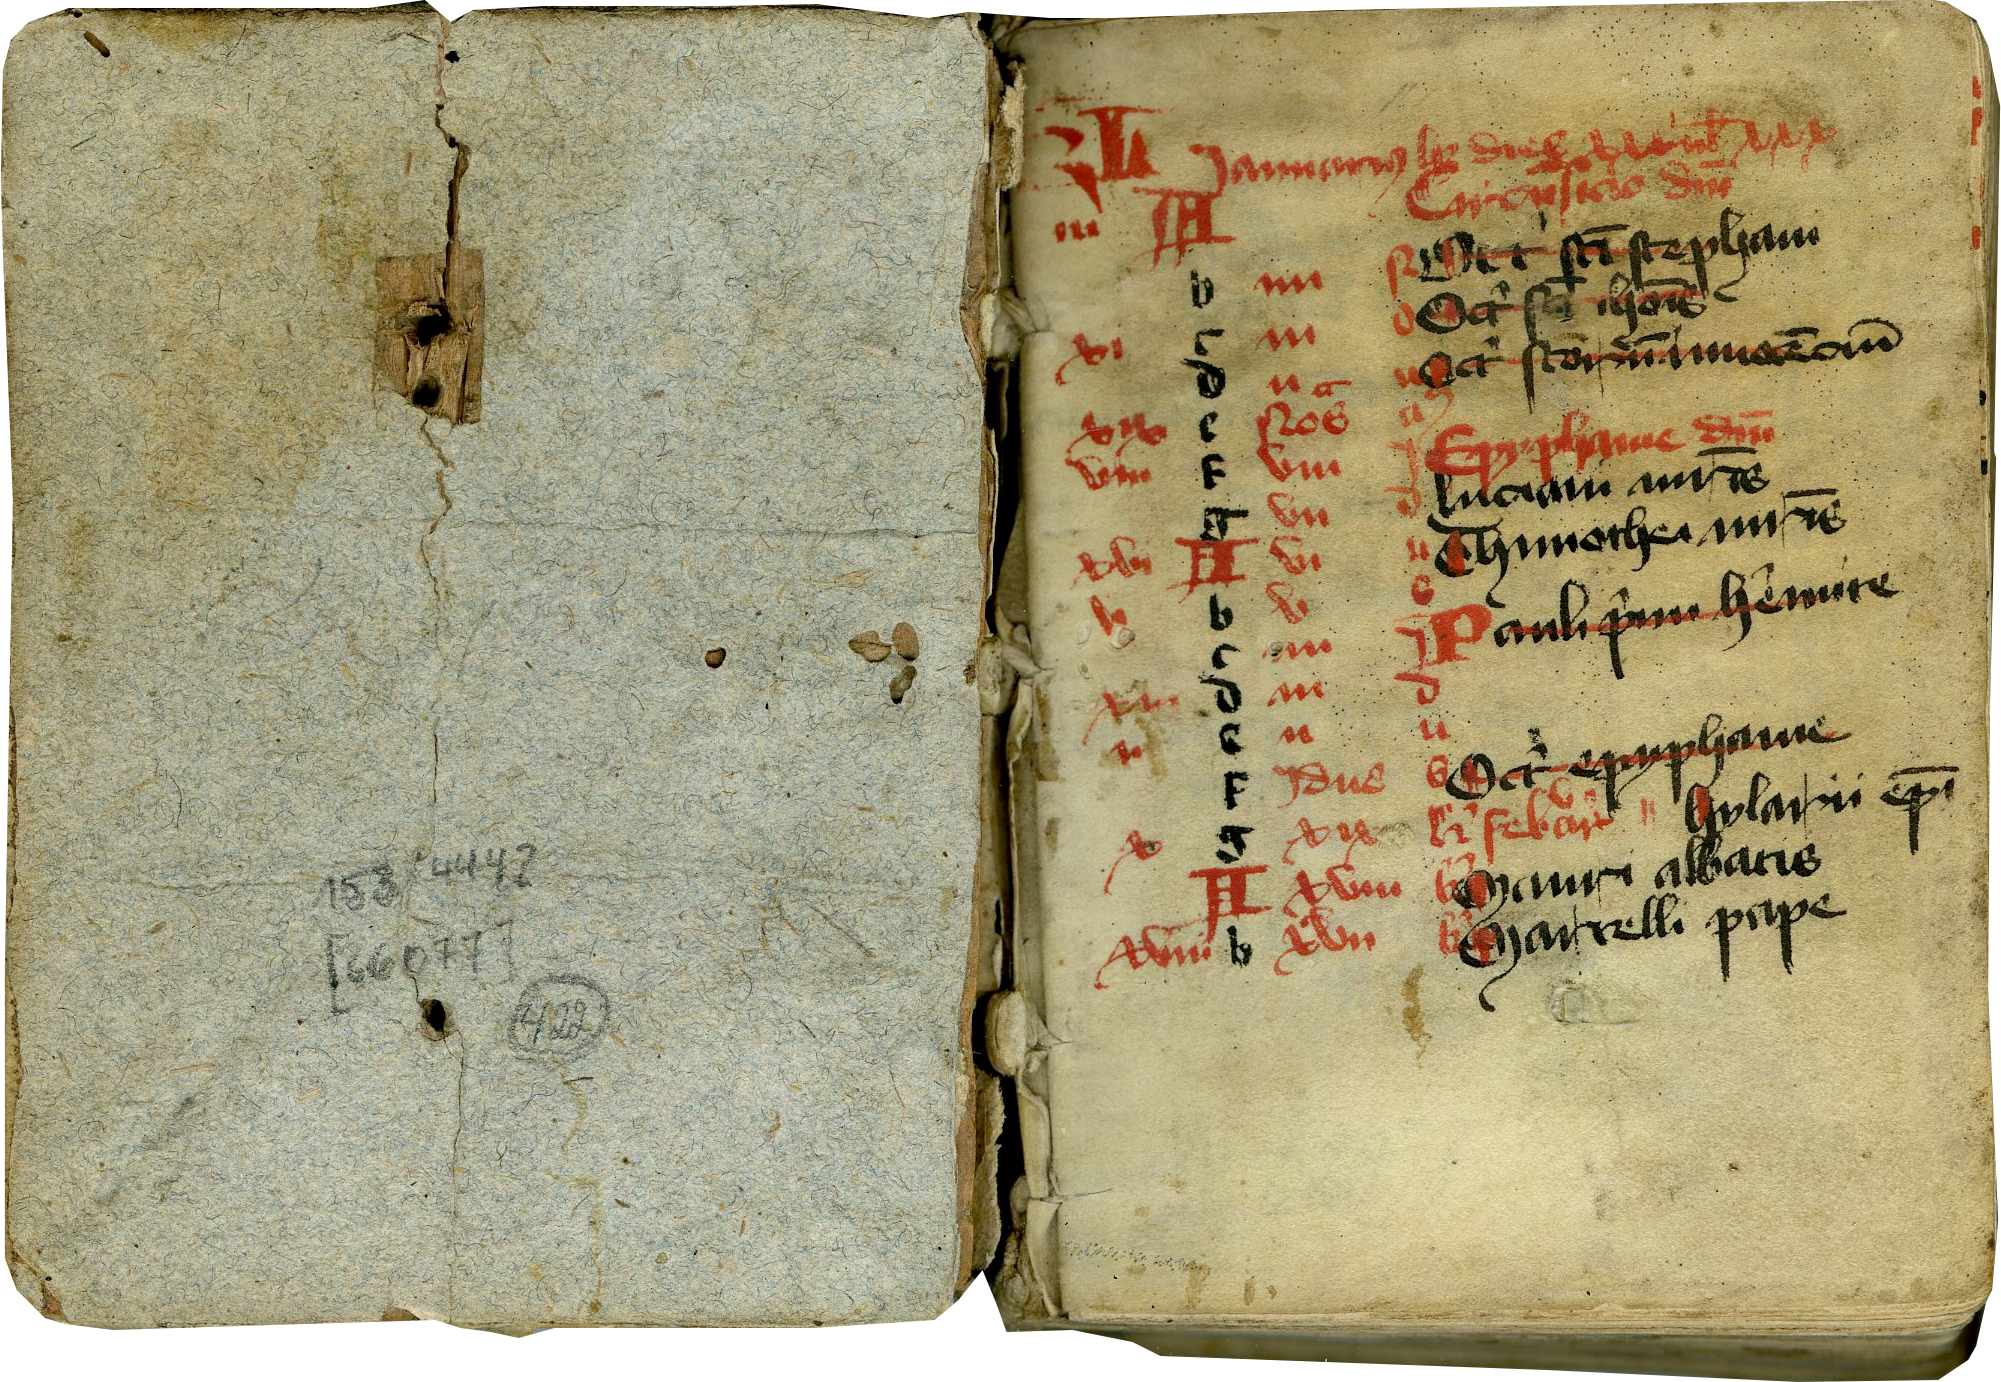 158/4442
[660777]
422
KL Januarius hz dies xxxi luna xxx
iii A Circucisio dni
b iiii N Oct' sci stephani
xi c iii o Oct' sci ioh'is
d ii n Oct' scor
xix e Nos
viii F viii Epyphanie dni
g vii d luciani mr̄is
xvi A vi u Thimothei mr̄is
v b v s
c iiii J Pauli p'mi h'emite
xiii d iii d
ii e ii u
F Jdus s Oct' epyphanie
x g xix kl' febar' hylarii ep̄i
A xviii kl Mauri abbatis
xviii b xvii kl Marcelli pape